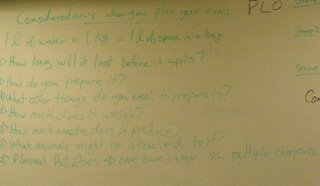 Considerations when you plan your meals PLO
1 l of water = 1 kg = 1 l of space in a bag
→ How long will it last before it spoils?
→ How do you prepare it?
→ What other things do you need to prepare it?
→ How much does it weigh?
→ How much waste does it produce?
→ What animals might be attracted to it?
→ Planned Activities → one base camp vs multiple campsites
Group 2
Group